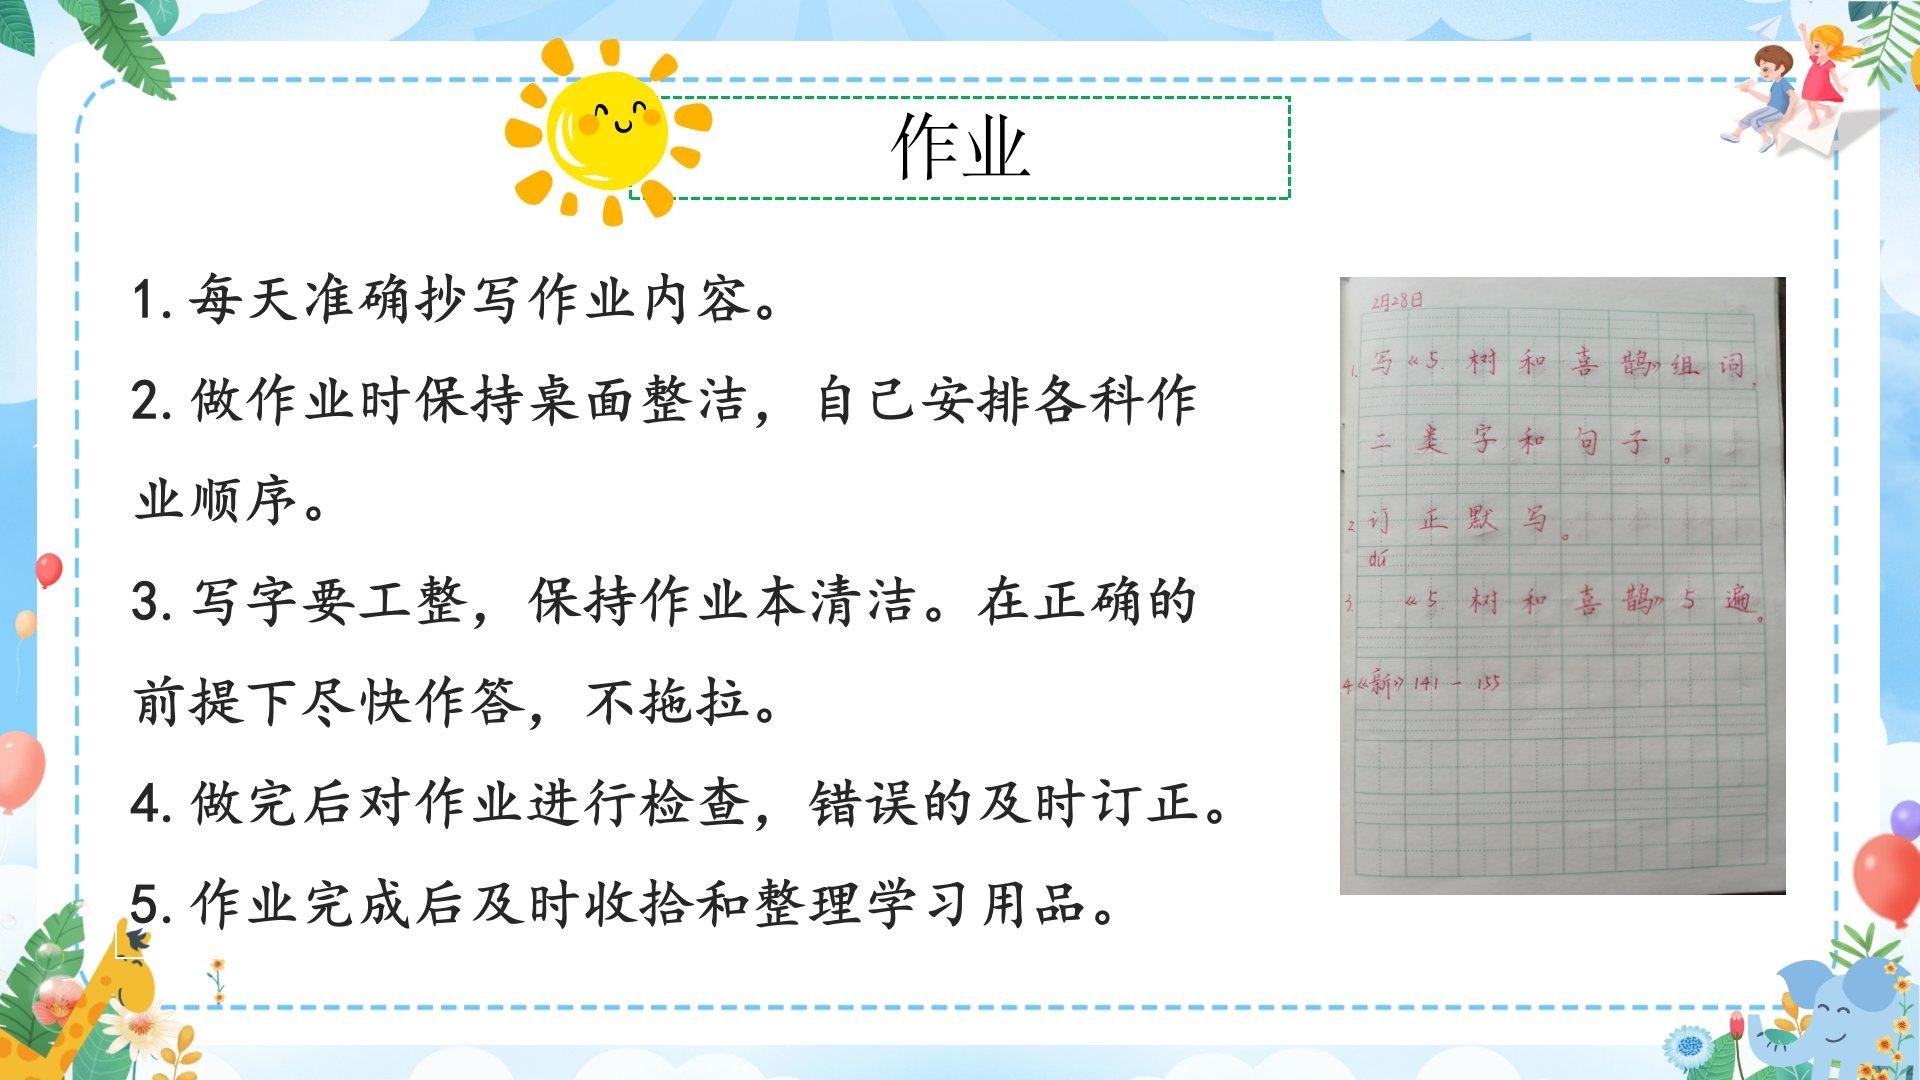 作业
1.每天准确抄写作业内容。
2.做作业时保持桌面整洁，自己安排各科作
业顺序。
3.写字要工整，保持作业本清洁。在正确的
前提下尽快作答，不拖拉。
4.做完后对作业进行检查，错误的及时订正。
5.作业完成后及时收拾和整理学习用品。
2月28日
1.写《5.树和喜鹊》组词，
二类字和句子。
2.订正默写。
dú
3.《5.树和喜鹊》5遍。
4《新》141-155